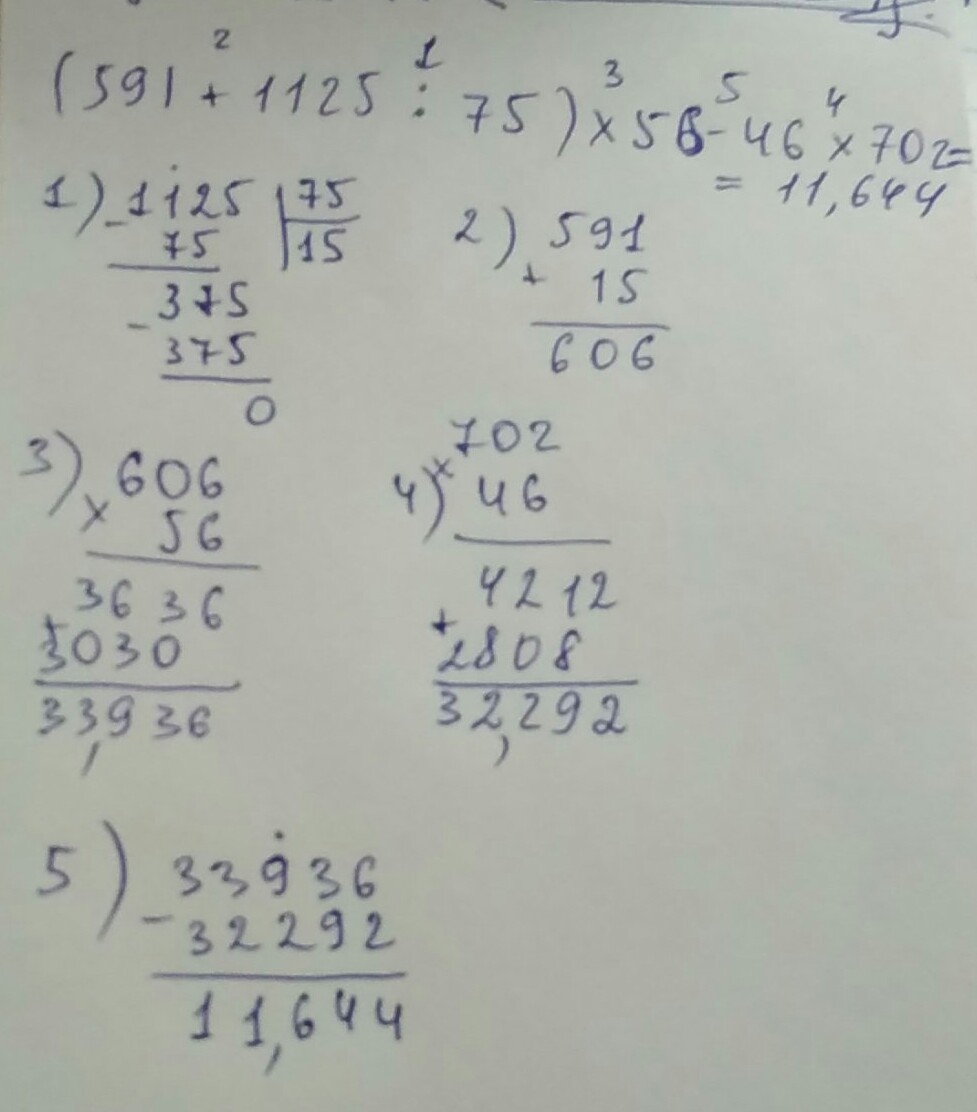 2 1 3 5 4
(591 + 1125 : 75) × 56 - 46 × 702 =
= 11,644
1) - 1125 | 75
75 | 15
- 375
375
0
2) 591
+ 15
606
3) 606
× 56
3636
+ 3030
33,936
4) × 702
46
4212
+ 2808
32,292
5) 33936
- 32292
11,644